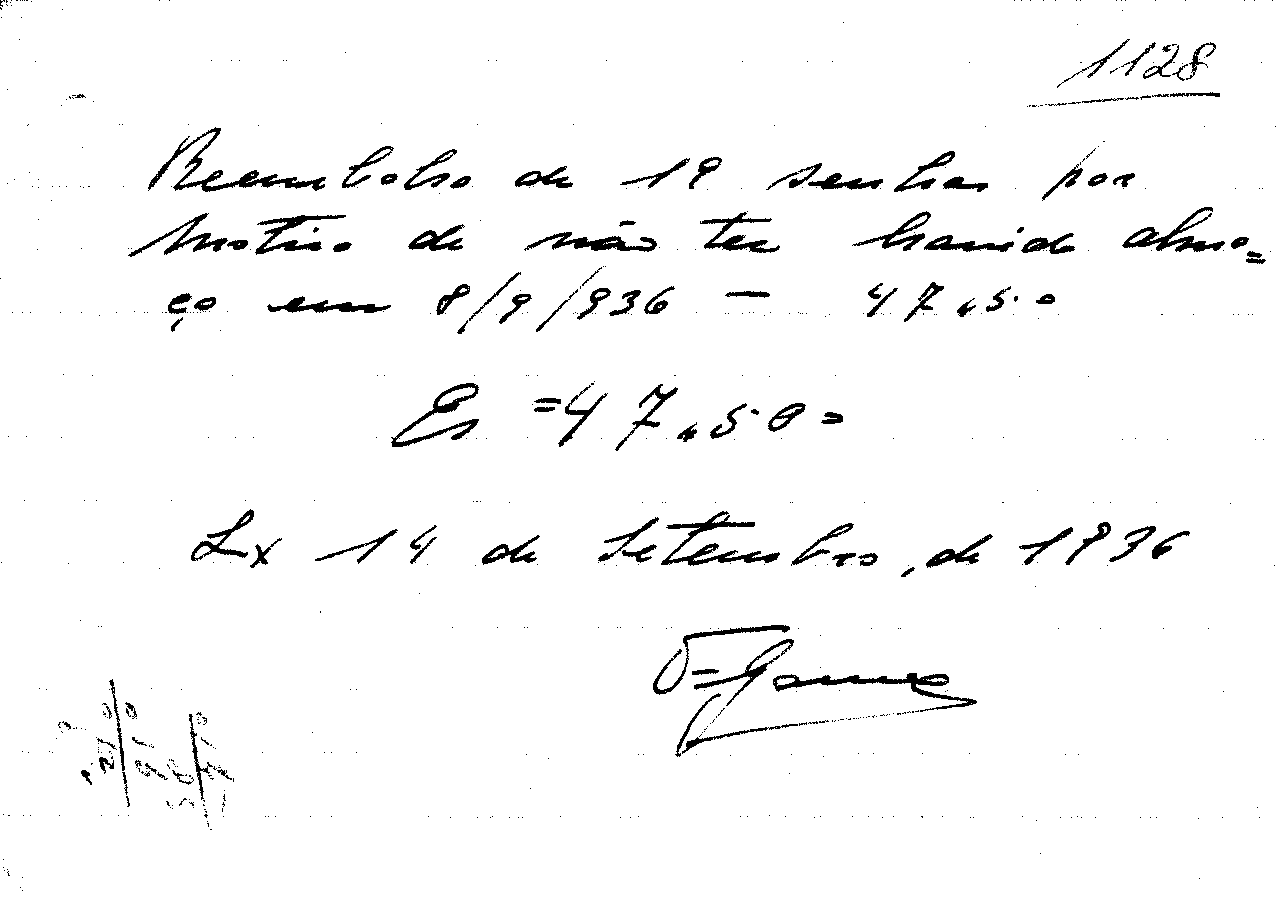 1128
Reembolso de 19 senhas por
motivo de não ter havido almo=
ço em 8/9/936 — 47,50
Es =47,50=
Lx 14 de Setembro, de 1936